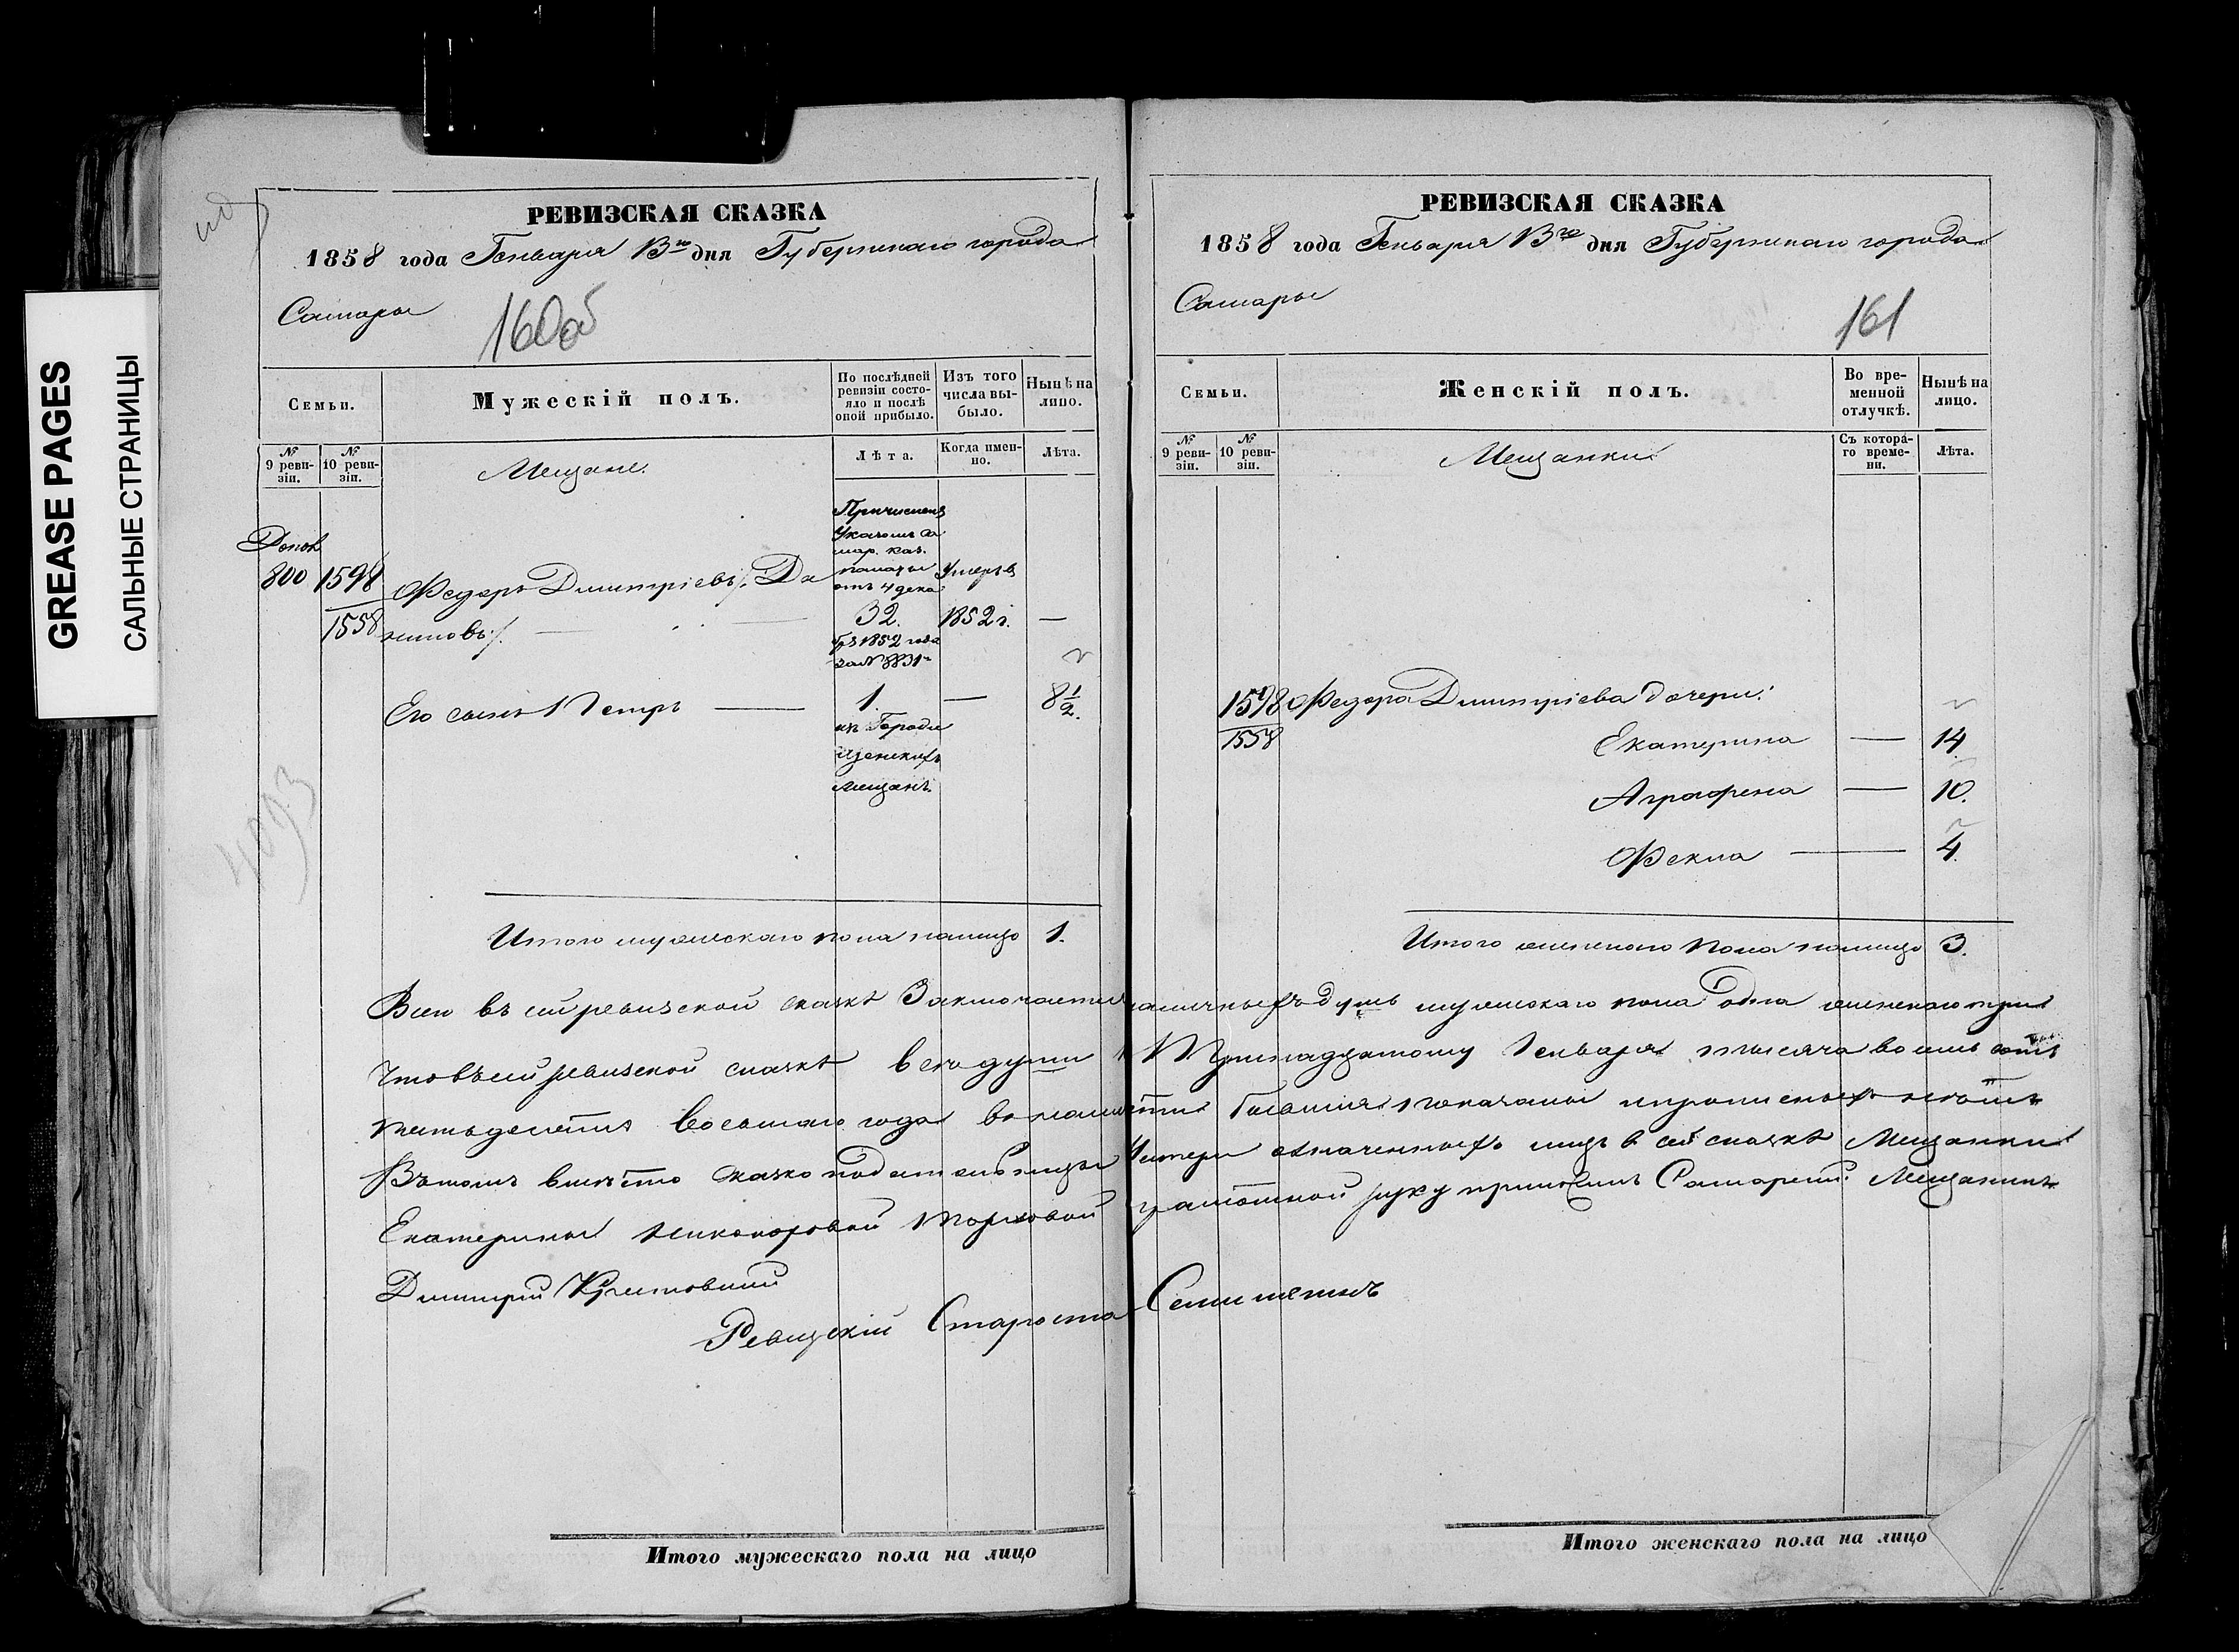 GREASE PAGES
САЛЬНЫЕ СТРАНИЦЫ
РЕВИЗСКАЯ СКАЗКА
1858 года Генваря 13го дня Губернскаго города
Самары
160об
Семьи.
Мужескій полъ.
По послѣдней ревизіи состояло и послѣ оной прибыло.
Изъ того числа выбыло.
Нынѣ на лицо.
№ 9 ревизіи.
№ 10 ревизіи.
Мещане.
Лѣта.
Когда именно.
Лѣта.
Причисленъ
Указомъ Са
мар. каз.
палаты
отъ 4 дека
32.
бря 1852 года
за № 8831
800 1598
1558
Федоръ Дмитріевъ /: Да
ниловъ :/
Умеръ въ
1852 г. —
Его сынъ Петръ — 1. — 8 1/2.
изъ Городи
щенскихъ
мещанъ.
4093
Итого мужескаго пола налицо 1.
РЕВИЗСКАЯ СКАЗКА
1858 года Генваря 13го дня Губернскаго города
Самары
161
Семьи.
Женскій полъ.
Во временной отлучкѣ.
Нынѣ на лицо.
№ 9 ревизіи.
№ 10 ревизіи.
Мещанки.
Съ котораго времени.
Лѣта.
1598 Федора Дмитріева дочери:
1558
Екатерина — 14.
Аграфена — 10.
Фекла — 4.
Итого женскаго пола налицо 3.
Всего въ сей ревизской сказкѣ Заключается наличныхъ душъ мужескаго пола одна женскаго три
что въ сей ревизской сказкѣ всѣ души к Тринадцатому Генваря тысяча восемь сотъ
пятьдесятъ восьмаго года
Въ томъ вмѣсто сказкоподательницы Матери означенныхъ лицъ в сей сказкѣ Мещанки
Екатерины Никоноровой руку приложилъ Самарский Мещанинъ
Дмитрий
Ревизскій Староста
Итого мужескаго пола на лицо
Итого женскаго пола на лицо